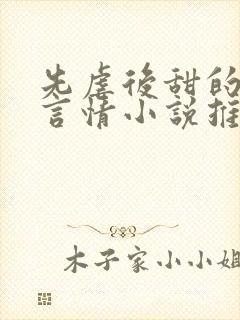 先虐後甜的
言情小說推
木子家小小姐